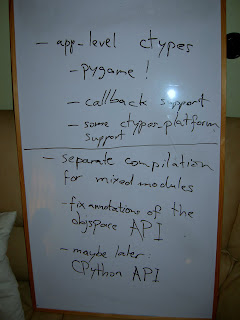 - app-level ctypes
- pygame!
- callback support
- some ctypes-platform
support
- separate compilation
for mixed modules
- fix annotations of the
objspace API
- maybe later:
CPython API